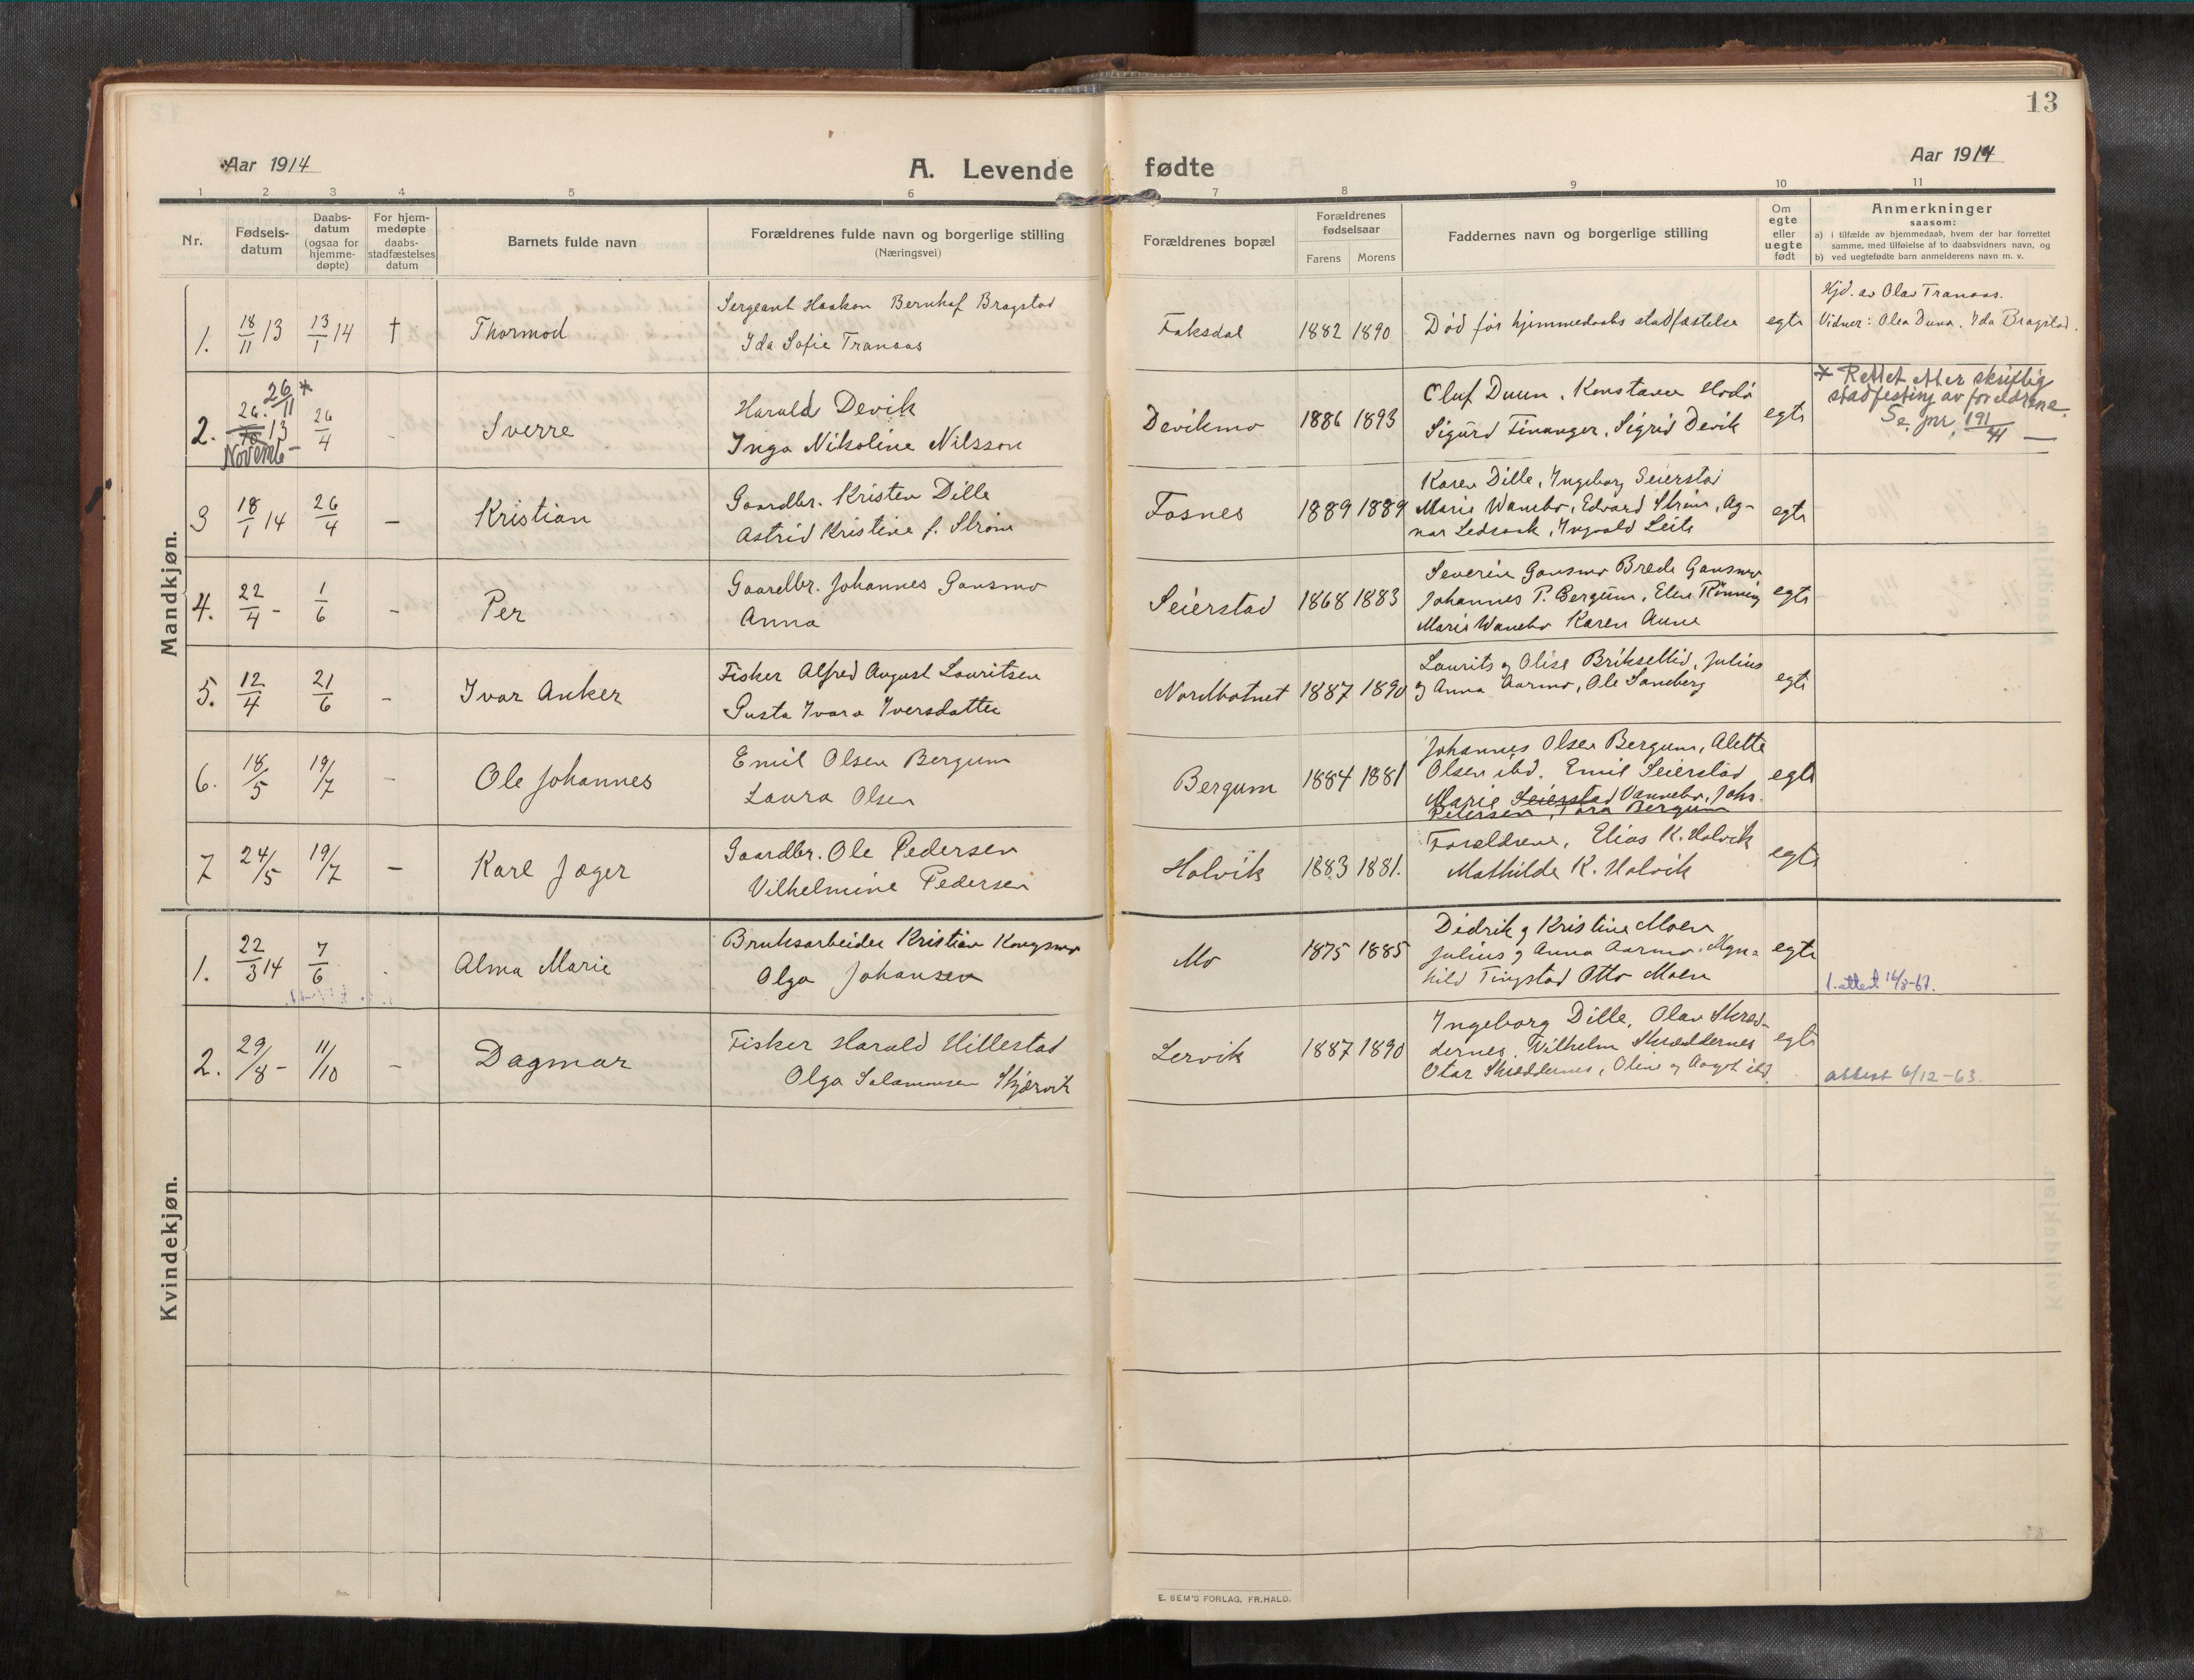 13
Aar 1914
A. Levende fødte
Aar 1914
1 2 3 4 5 6 7 8 9 10 11
Nr.
Fødsels-
datum
Daabs-
datum
(ogsaa for
hjemme-
døpte)
For hjem-
medøpte
daabs-
stadfæstelses
datum
Barnets fulde navn
Forældrenes fulde navn og borgerlige stilling
(Næringsvei)
Forældrenes bopæl
Forældrenes
fødselsaar
Farens Morens
Faddernes navn og borgerlige stilling
Om
egte
eller
uegte
født
Anmerkninger
saasom:
a) i tilfælde av hjemmedaab, hvem der har forrettet
samme, med tilføielse af to daabsvidners navn, og
b) ved uegtefødte barn anmelderens navn m. v.
Mandkjøn.
1. 18/11 13 13/1 14 † Thormod
Sergeant Haakon Bernhof Bragstad
Ida Sofie Tranaas
Faksdal 1882 1890 Død før hjemmedaabs stadfæstelse egte
Hjd. av Olav Tranaas.
Vidner: Olea Duna, Ida Bragstad.
26/11 *
2. 26. 10 13 26/4 - Sverre
Novemb -
Harald Devik
Inga Nikoline Nilsson
Devikmo 1886 1893
Oluf Duun, Konstanse
Sigurd Finanger, Sigrid Devik
egte
* Rettet etter skriftlig
stadfesting av foreldrene.
Se jnr. 191/41 —
3 18/1 14 26/4 - Kristian
Gaardbr. Kristen Dille
Astrid Kristine f. Strøm
Fosnes 1889 1889
Karen Dille, Ingeborg Seierstad
Marie Wannebo, Edvard Strøm, Ag-
nar Ledsaak, Ingvald Leite
egte
4. 22/4 - 1/6 - Per
Gaardbr. Johannes Gansmo
Anna
Seierstad 1868 1883
Severin Gansmo Brede Gansmo
Johannes P. Bergum, Elen Rønning
Marie Wannebo Karen Aune
egte
5. 12/4 21/6 - Ivar Anker
Fisker Alfred August Lauritsen
Gusta Ivara Iversdatter
Nordbotnet 1887 1890
Laurits og Olise Briksellid, Julius
og Anna Aarmo, Ole Sandberg
egte
6. 18/5 19/7 - Ole Johannes
Emil Olsen Bergum
Laura Olsen
Bergum 1884 1881
Johannes Olsen Bergum, Alette
Olsen ibd. Emil Seierstad
Marie Seierstad Vannebo, Johs.
Petersen, Tora Bergum
egte
7 24/5 19/7 - Karl Jæger
Gaardbr. Ole Pedersen
Vilhelmine Pedersen
Holvik 1883 1881.
Forældrene, Elias K. Holvik
Mathilde K. Holvik
egte
Kvindekjøn.
1. 22/3 14 7/6 - Alma Marie
Bruksarbeider Kristian Kongsmo
Olga Johansen
Mo 1875 1885
Didrik og Kristine Moen
Julius og Anna Aarmo. Magn-
hild Tingstad Otto Moen
egte
1. attest 16/3-67.
2. 29/8 - 11/10 - Dagmar
Fisker Harald Hillestad
Olga Salamonsen Skjærvik
Lervik 1887 1890
Ingeborg Dille, Olav Skræd-
dernes. Wilhelm Skræddernes
Otar Skræddernes, Oline og Aagot ibd.
egte
attest 6/12-63.
E. SEM'S FORLAG, FR.HALD.